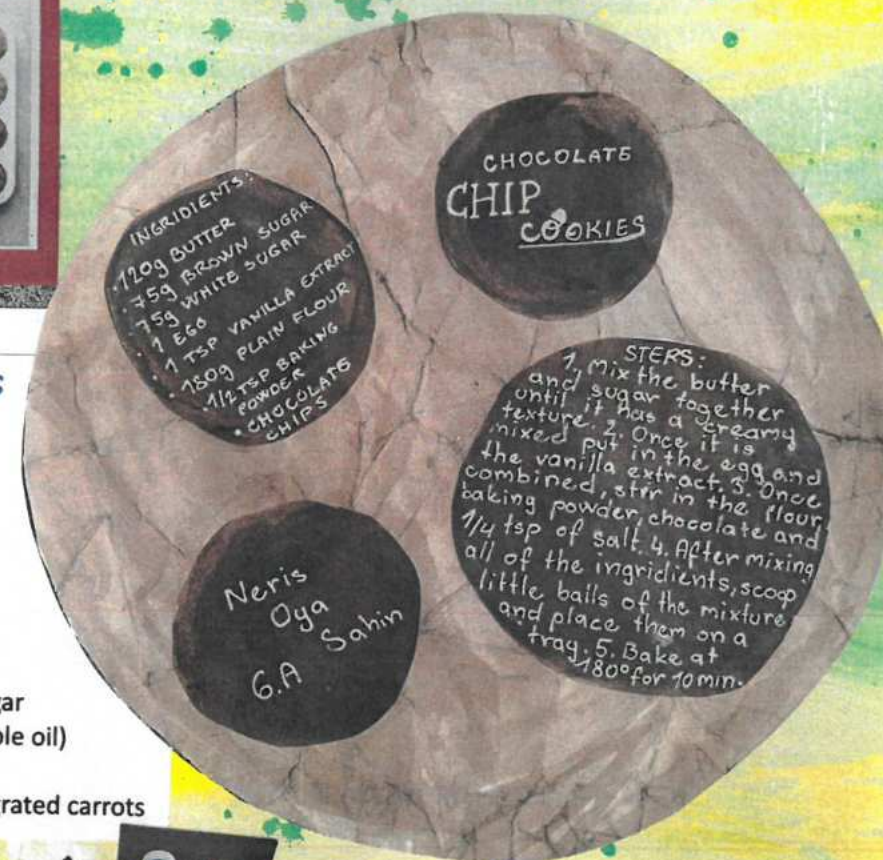 CHOCOLATE
CHIP
COOKIES
INGRIDIENTS:
• 120g BUTTER
• 75g BROWN SUGAR
• 75g WHITE SUGAR
• 1 EGG
• 1 TSP VANILLA EXTRACT
• 180g PLAIN FLOUR
• 1/2 TSP BAKING
POWDER
• CHOCOLATE
CHIPS
STEPS:
1. Mix the butter
and sugar together
until it has a creamy
texture. 2. Once it is
mixed put in the egg and
the vanilla extract. 3. Once
combined, stir in the flour,
baking powder, chocolate and
1/4 tsp of salt. 4. After mixing
all of the ingridients, scoop
little balls of the mixture
and place them on a
tray. 5. Bake at
180° for 10 min.
Neris
Oya
Sahin
6.A
gar
ble oil)
grated carrots